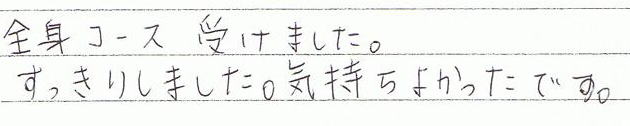 全身コース 受けました。
すっきりしました。気持ちよかったです。